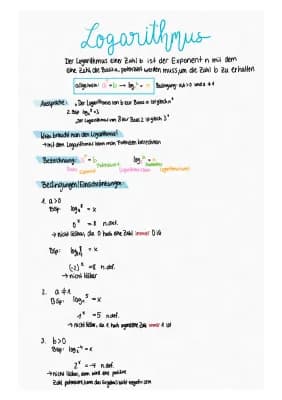 Logarithmus
Der Logarithmus einer Zahl b ist der Exponent n mit dem
eine Zahl, die Basis a, potenziert werden muss, um die Zahl b zu erhalten
allgemein: aⁿ = b → logₐ b = n Bedingung: a,b > 0 und a ≠ 1
Aussprache: "Der Logarithmus von b zur Basis a ist gleich n"
z.Bsp. log₂ 8 = 3
"Der Logarithmus von 8 zur Basis 2 ist gleich 3"
Wozu braucht man den Logarithmus?
→ mit dem Logarithmus kann man Potenzen berechnen
Bezeichnung: aⁿ = b logₐ b = n
Basis Exponent Potenzwert Logarithmus
Bedingungen/Einschränkungen:
1. a > 0
Bsp: log₀ 8 = x
0ˣ = 8 n.def.
→ nicht lösbar, da 0 hoch eine Zahl immer 0 ist
Bsp: log₋₂ 8 = x
(-2)ˣ = 8 n.def.
→ nicht lösbar
2. a ≠ 1
Bsp: log₁ 5 = x
1ˣ = 5 n.def.
→ nicht lösbar, da 1 hoch irgendeine Zahl immer 1 ist
3. b > 0
Bsp: log₂ -4 = x
2ˣ = -4 n.def.
→ nicht lösbar, denn wird eine positive
Zahl potenziert, kann das Ergebnis nicht negativ sein